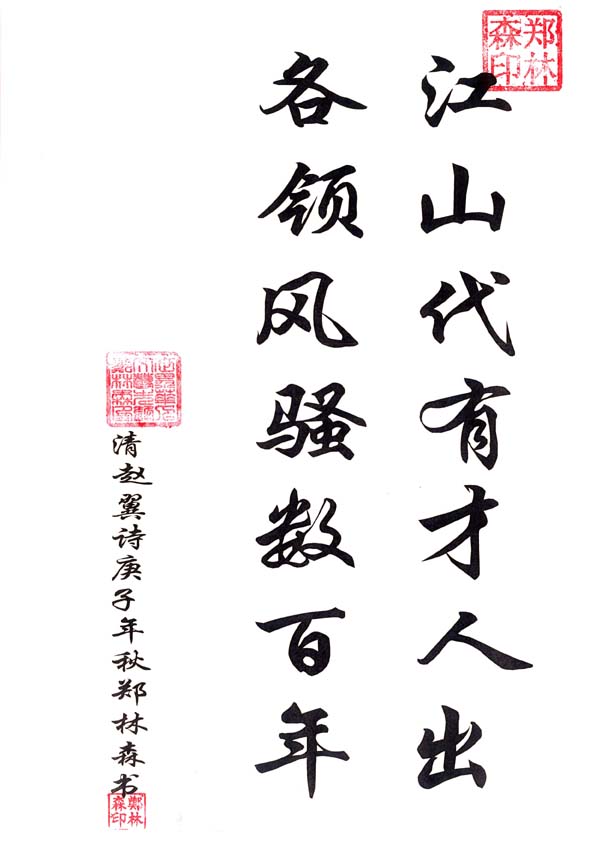 江山代有才人出
各领风骚数百年
清赵翼诗庚子年秋郑林森书
郑林森印
郑林森印